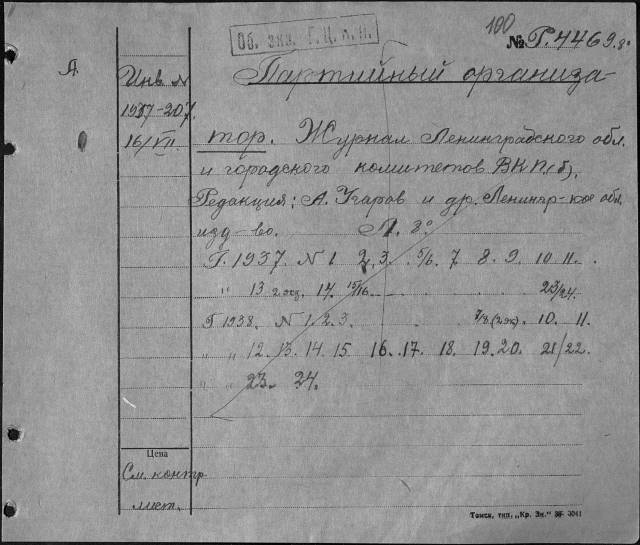 Об. экз. Г. Ц. К. П.
100
№ Р.4469.8°
А.
Инв N
1937-207.
16/VII.
Партийный организа-
тор. Журнал Ленинградского обл.
и городского комитетов ВКП(б).
Редакция: А. Угаров и др. Ленингр-кое обл.
изд-во. Л. 8°
Г. 1937. N 1 2. 3. 5/6. 7 8. 9. 10 11.
" 13 2 экз. 14. 15/16 23/24.
Г 1938. N 1. 2. 3. 7/8. (2 эк). 10. 11.
" " 12. 13. 14. 15. 16. 17. 18. 19. 20. 21/22.
" " 23. 24.
Цена
См. контр
лист.
Томск, тип. „Кр. Зн." 3041